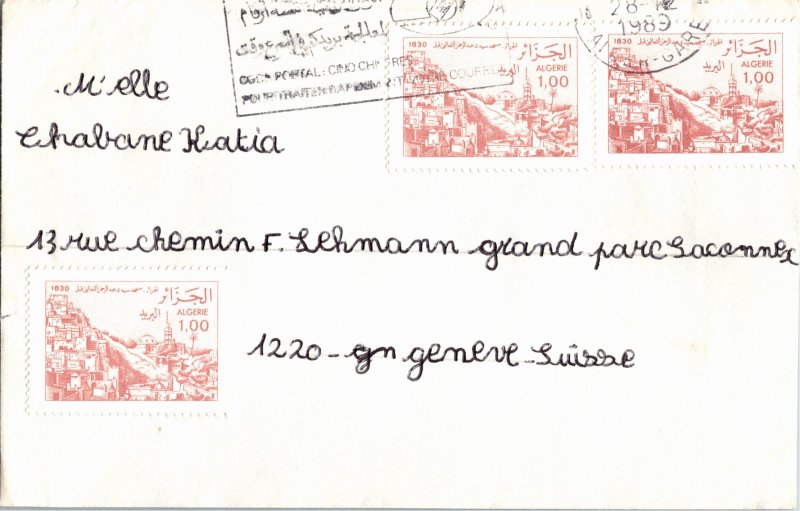 28-12
1989
ALGER-GARE
CODE POSTAL: CINQ CHIFFRES
POUR TRAITER RAPIDEMENT VOTRE COURRIER
1830
الجزائر
البريد
ALGERIE
1,00
1830
الجزائر
البريد
ALGERIE
1,00
M'elle
Chabane Katia
13 rue chemin F. Lehmann grand parc Saconnex
1830
الجزائر
البريد
ALGERIE
1,00
1220 - gn geneve - Suisse